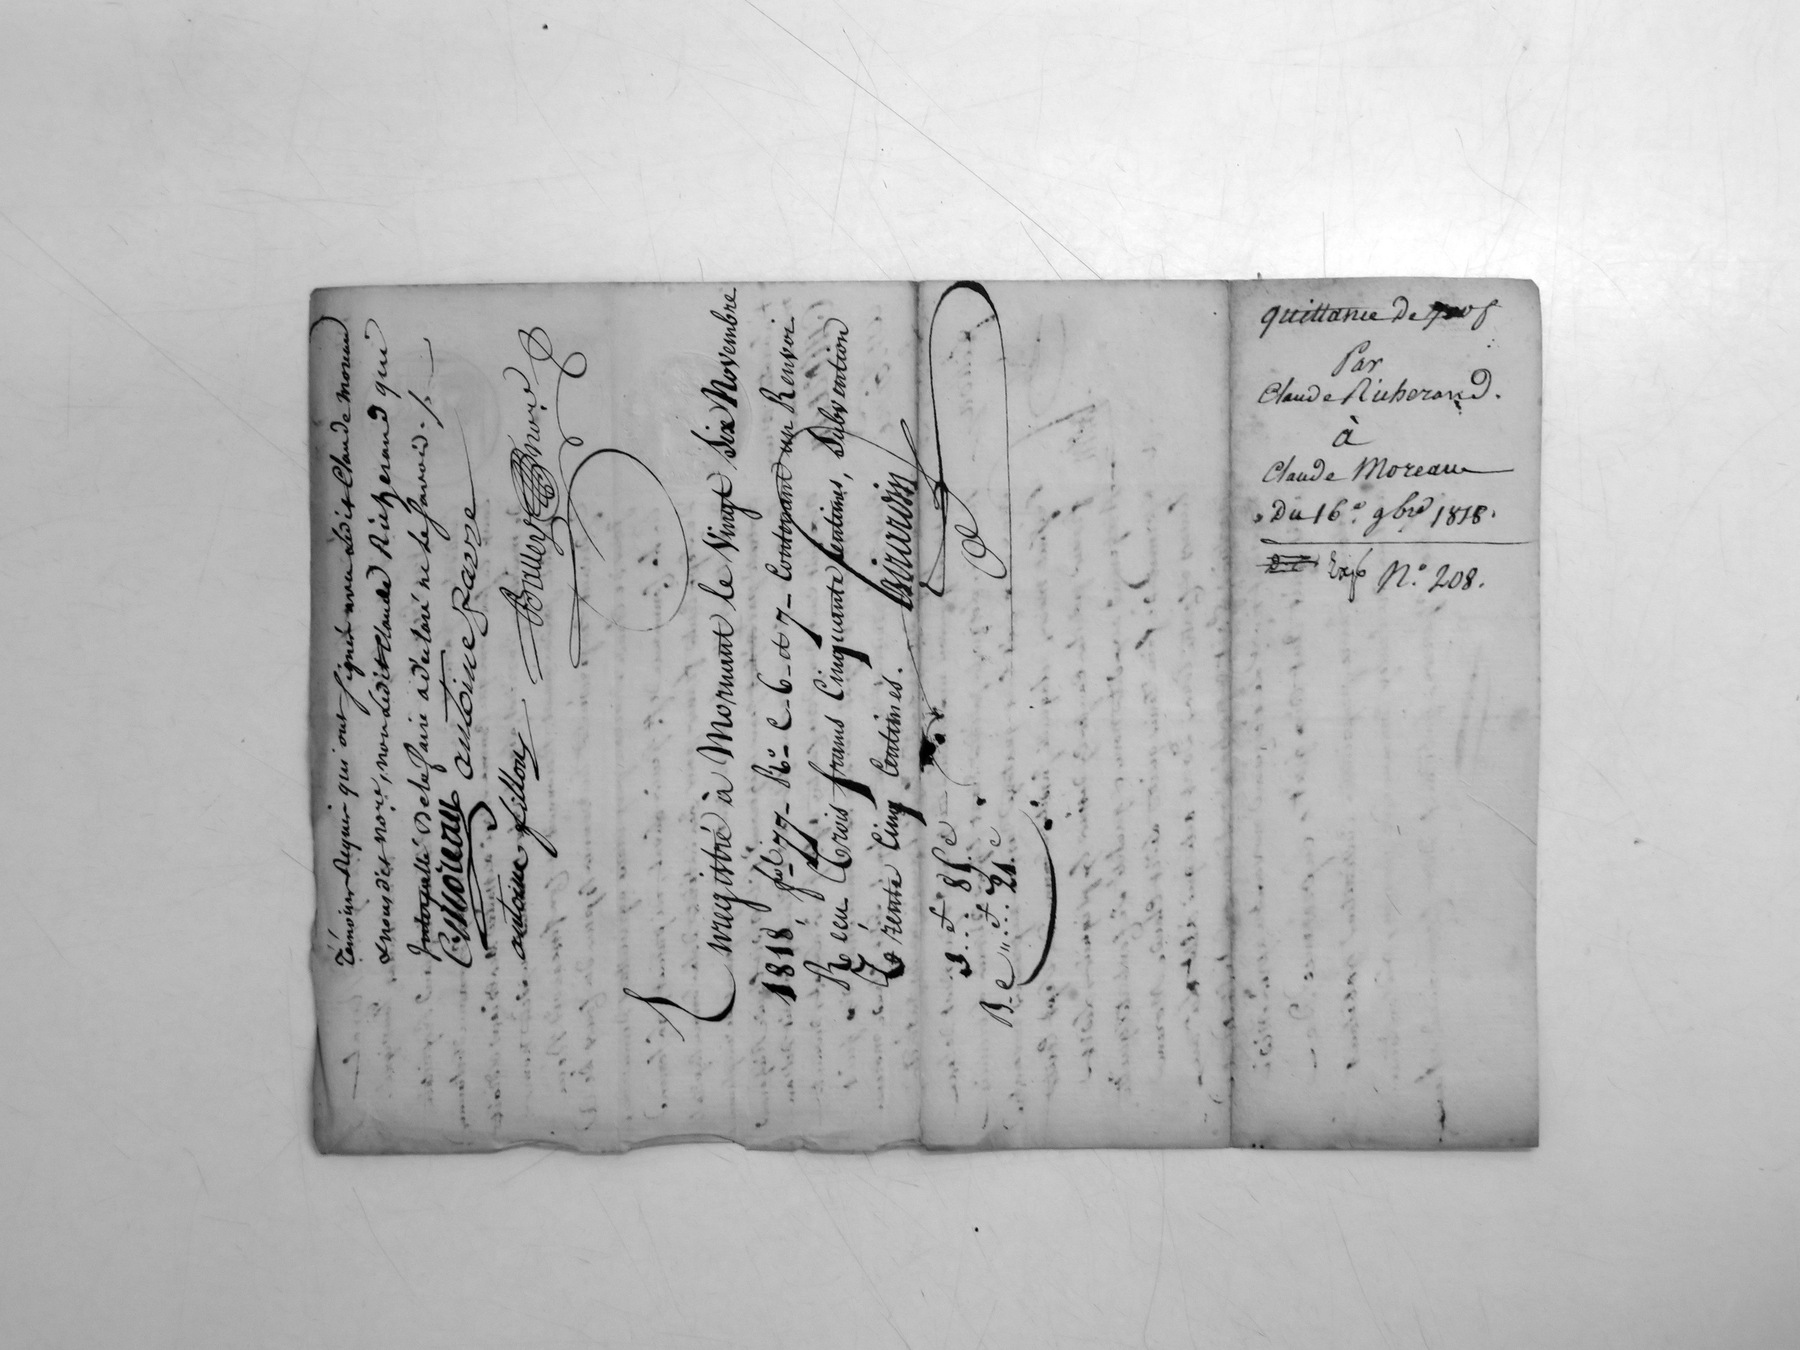 Témoins requis qui ont signé avec ledit Claude Moreau
& nousdit not.re, non ledit Claude Richerand qui
Interpellé de le faire a déclaré ne le savoir ./.
C. moreau antoine
antoine fillon
Enregistré à Mornant le Vingt Six Novembre
1818, f.o 77 R.o C. 6 et 7 Contenant un Renvoi
Reçu Trois francs Cinquante Centimes, Subvention
Trente Cinq Centimes. Girardin
3 f. 85 c
21 c
quittance de
Par
Claude Richerand.
à
Claude Moreau
Du 16.e 9bre 1818.
Exp N.o 208.